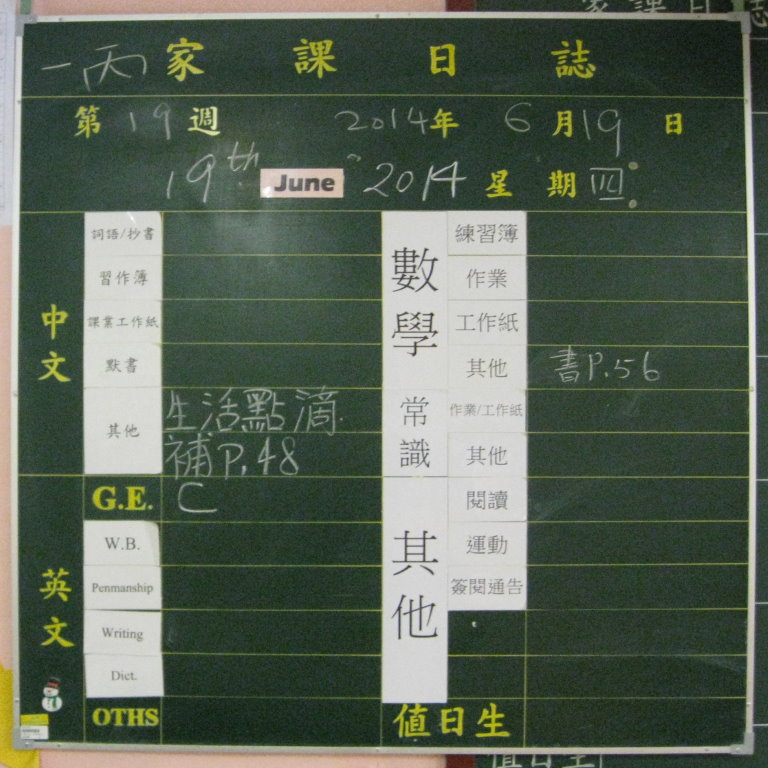 一丙 家課日誌
第19週 2014年6月19日
19th June 2014 星期四
中文
詞語/抄書
習作簿
課業工作紙
默書
其他 生活點滴
補P.48
英文
G.E. C
W.B.
Penmanship
Writing
Dict.
OTHS
數學
練習簿
作業
工作紙
其他 書P.56
常識
作業/工作紙
其他
其他
閱讀
運動
簽閱通告
值日生
家課日誌
值日生